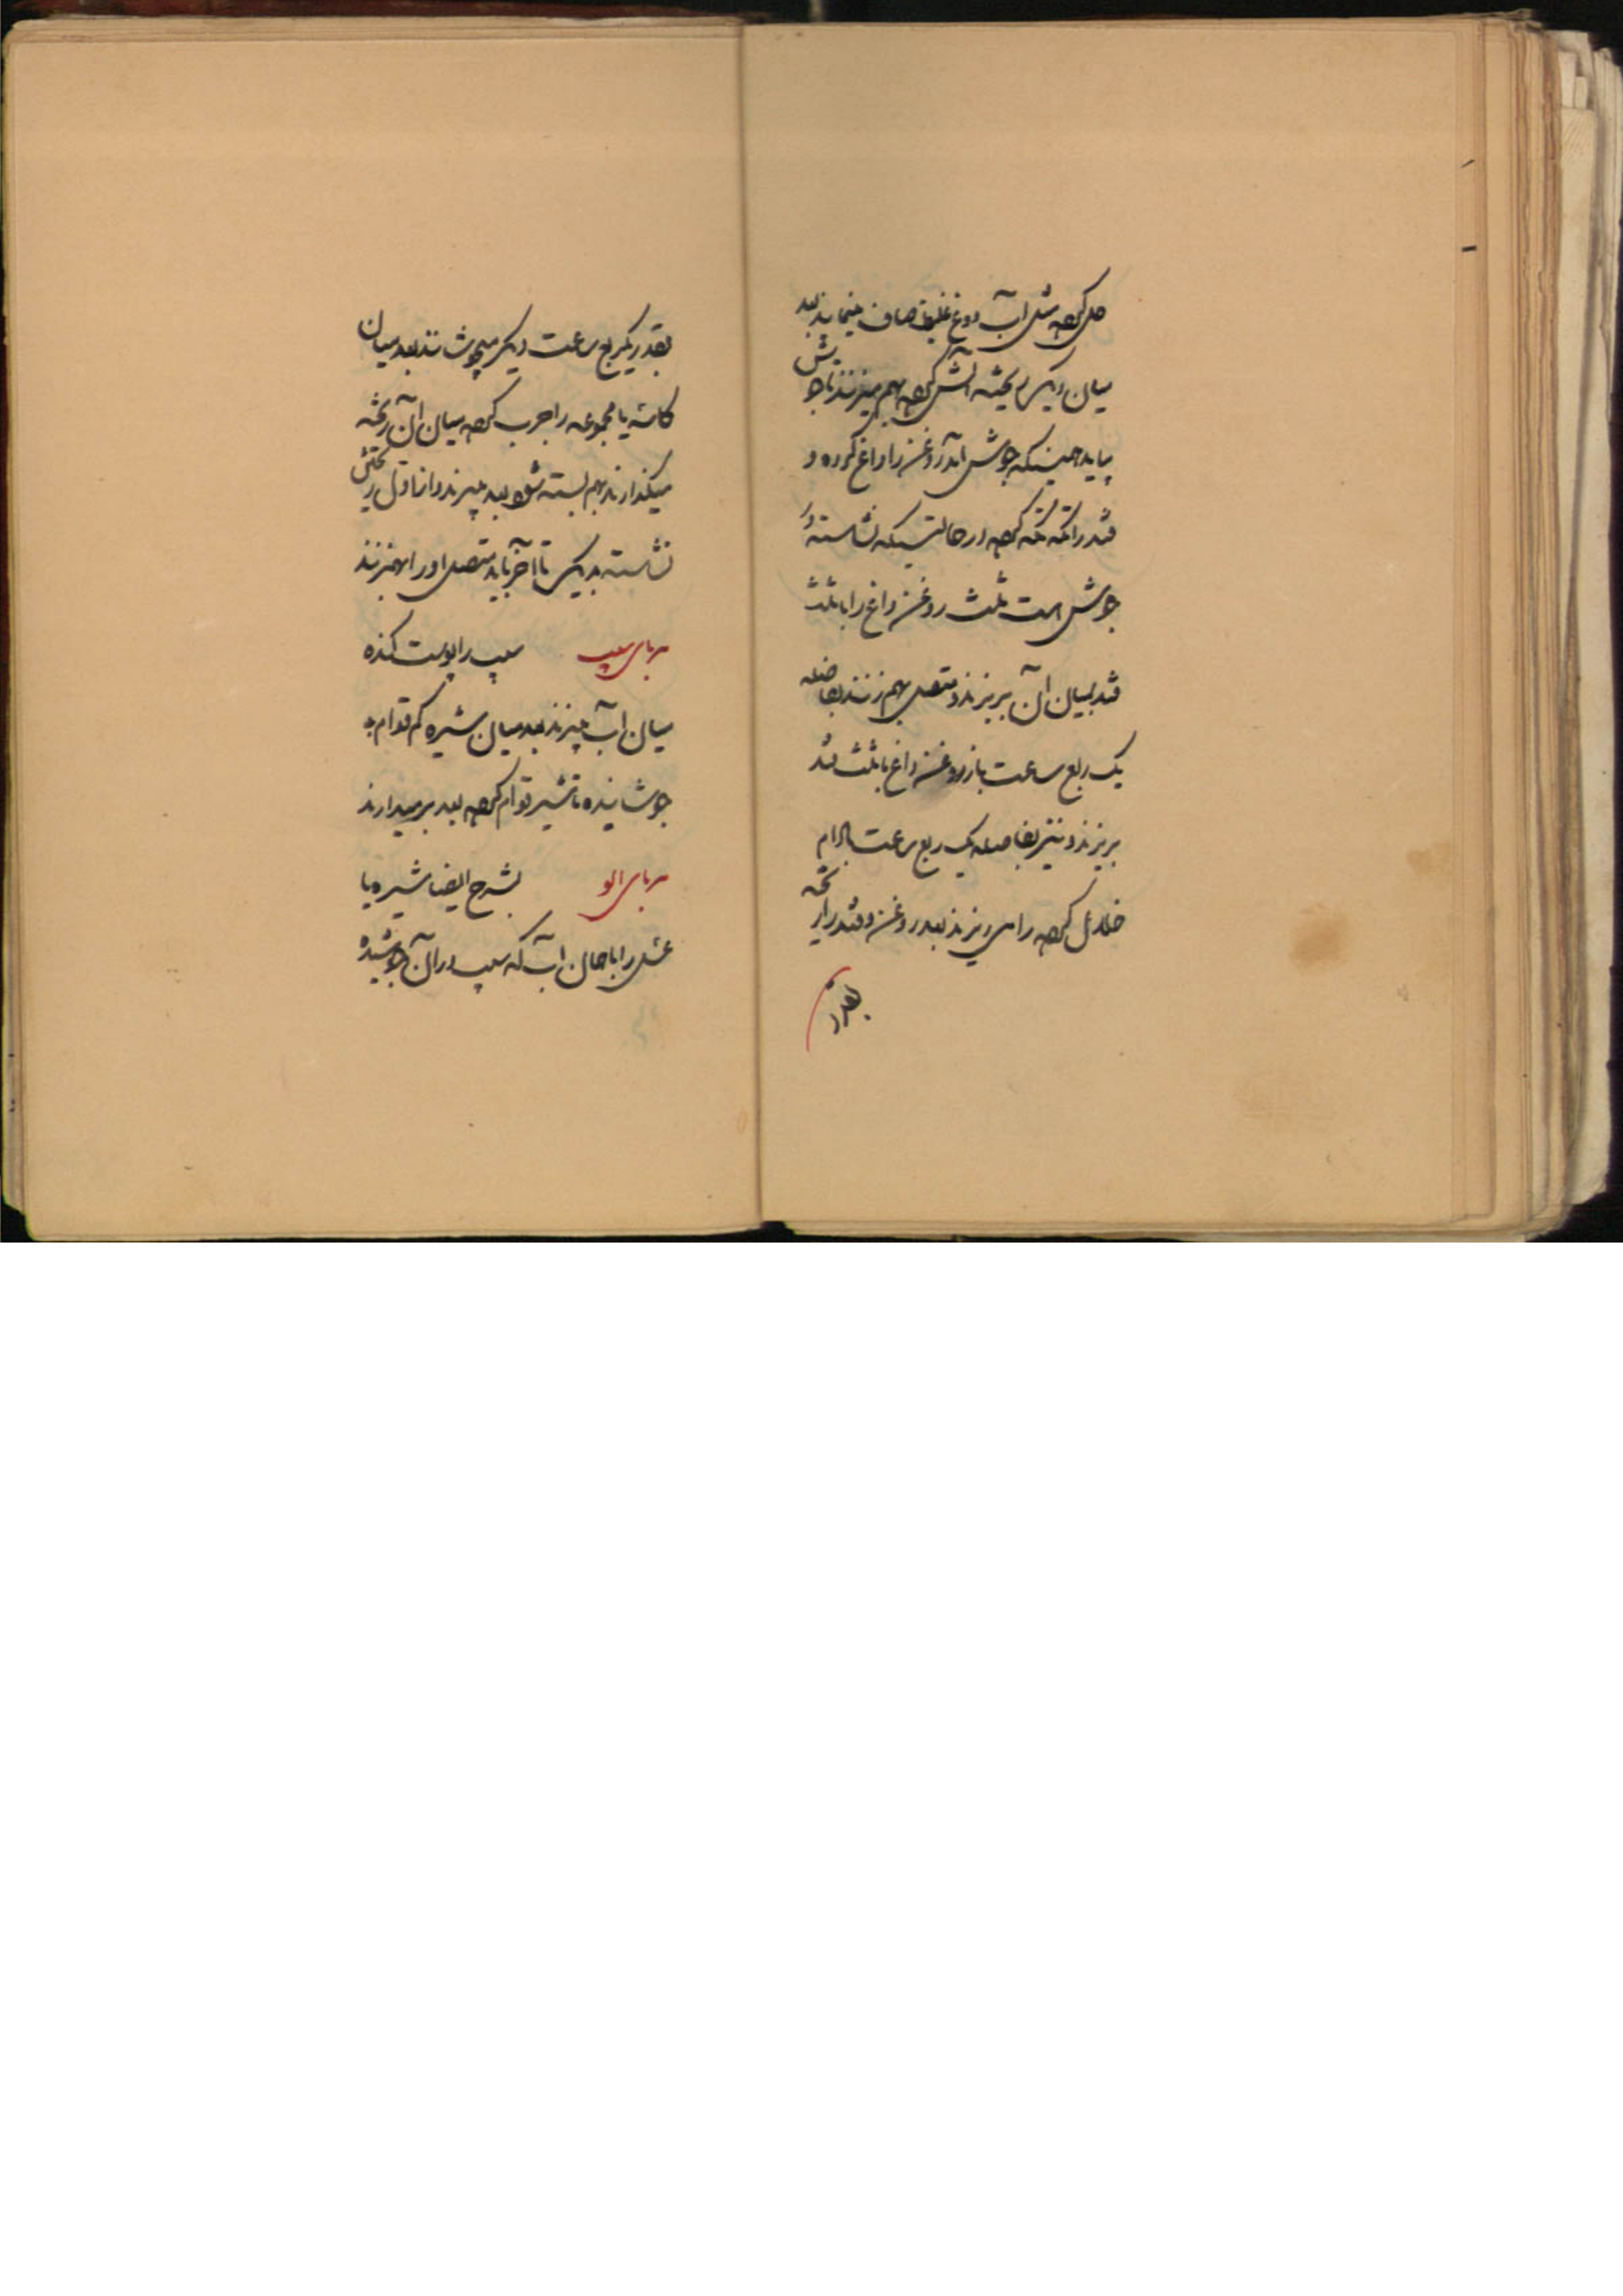 حل کرده مثل آب دوغ غلیظ صاف مینمایند بعد
میان دیک ریخته آتش کرده بهم میزنند تا جوش
بیاید همینکه جوش آمد روغن را داغ کرده و
قند را تکه تکه کرده در حالتیکه نشاسته در
جوش است ثلث روغن داغ را با ثلث
قند بمیان آن بریزند و متصل بهم زنند بفاصله
یک ربع ساعت باز روغن داغ با ثلث قند
بریزند و نیز بفاصله یک ربع ساعت بادام
خلال کرده را میریزند بعد روغن و قند را ریخته
بقدر
بقدر یکربع ساعت دیگر میجوشانند بعد میان
کاسه یا مجموعه را چرب کرده میان آن ریخته
میگذارند بهم بسته شود بعد میبرند و از اول ریختن
نشاسته بدیک تا آخر باید متصل او را بهمزنند
مربای سیب سیب را پوست کنده
میان آب میپزند بعد میان شیره کم قوام
جوشانیده تا شیر قوام کرده بعد برمیدارند
مربای الو بشرح ایضا شیره یا
عسل را با همان آب که سیب در آن جوشیده